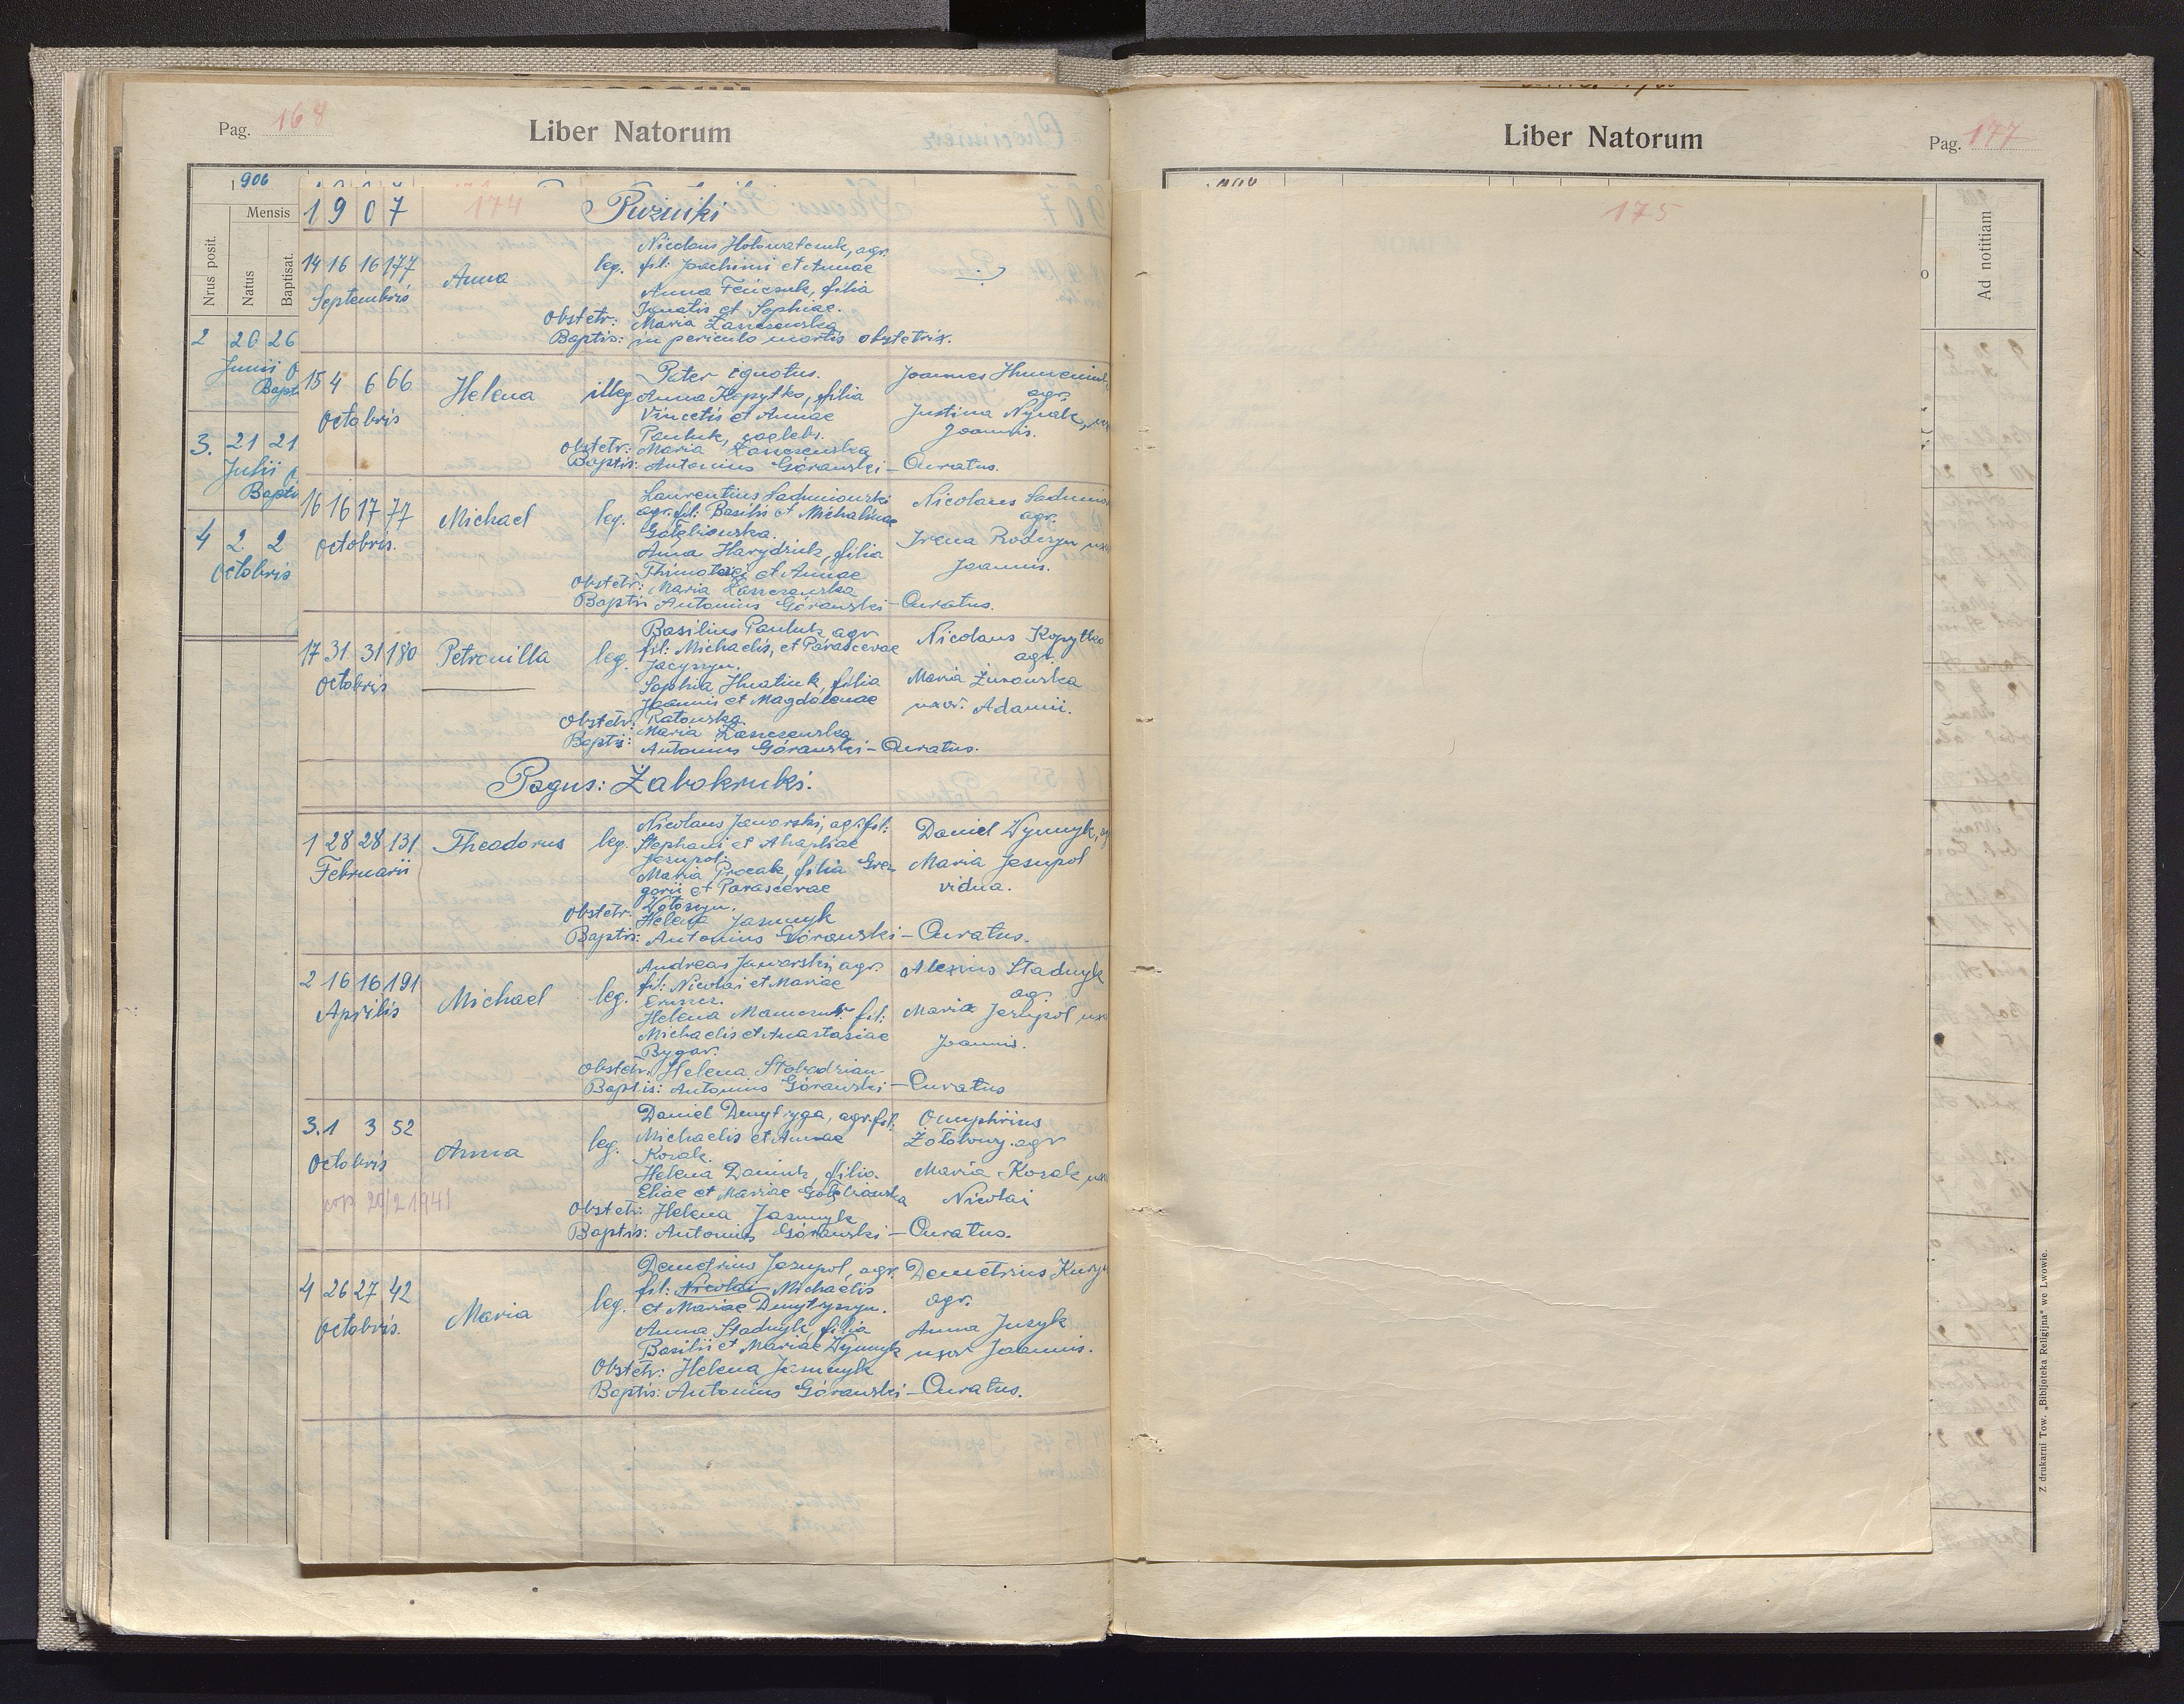 Pag. 168
Liber Natorum
1906
Mensis
Nrus posit.
Natus
Baptisat.
2 26 26
Junii
Bapt
3. 21 21
Julii
Bapti
4 2 2
Octobris
1907 174 Puźniki
14 16 16 177 Anna leg. Nicolaus Hołowatczuk, agr.
fil: Joachimi et Annae
Septembris
Anna Feńczuk, filia
Ignatis et Sophiae.
Obstetr: Maria Łaszczewska
Baptis: in periculo mortis obstetrix.
15 4 6 66 Helena illeg Pater ignotus.
Anna Kopytko, filia
Octobris
Vincetis et Annae
Pauluk, coelebs.
Joannes
agr.
Justina
Joannis.
Obstetr: Maria Łaszczewska
Baptis: Antonius Górawski - Curatus.
16 16 17 77 Michael leg. Laurentius
agr. fil: Basilii et Michalinae
Gołębiowska.
Octobris.
Anna Harydziuk, filia
et Annae
Nicolaus
agr.
Irena
Joannis.
Obstetr: Maria Łaszczewska
Baptis Antonius Górawski - Curatus.
17 31 31 180 Petronilla leg. Basilius Pauluk, agr
fil: Michaelis, et Parascevae
Jacyszyn.
Octobris
Sophia Hnatiuk, filia
Joannis et Magdalenae
Ratowska.
Nicolaus Kopytko
agr.
Maria Żurowska
uxor: Adami.
Obstetr: Maria Łaszczewska
Baptis: Antonius Górawski - Curatus.
Pagus: Żabokruki.
1 28 28 131 Theodorus leg. Nicolaus Jaworski, agr. fil:
Stephani et Ahaphiae
Jezupol.
Februarii
Maria Procak, filia Gre-
gorii et Parascevae
Wołoszyn.
Daniel Wynnyk,
Maria Jezupol
vidua.
Obstetr: Helena Jasznyk
Baptis: Antonius Górawski - Curatus.
2 16 16 191 Michael leg. Andreas Jaworski, agr.
fil: Nicolai et Mariae
Aprilis
Helena fil:
Michaelis et Anastasiae
Bygar.
Alexius Stadnyk
agr.
Maria Jezupol
Joannis.
Obstetr: Helena Słobodzian
Baptis: Antonius Górawski - Curatus
3. 1 3 52 Anna leg. Daniel Dmytryga, agr. fil:
Michaelis et Annae
Kozak.
Octobris
Helena Daniuk, filia
Eliae et Mariae Gołębiowska
Onuphrius
agr
Maria Kozak
Nicolai
20/2 1941
Obstetr: Helena Jasznyk
Baptis: Antonius Górawski - Curatus.
4 26 27 42 Maria leg. Demetrius Jezupol, agr.
fil: Nicolai Michaelis
et Mariae Dmytryszyn.
Octobris.
Anna Stadnyk, filia
Basilii et Mariae Wynnyk
Demetrius
agr.
Anna Juzyk
uxor Joannis.
Obstetr: Helena Jasznyk
Baptis: Antonius Górawski - Curatus.
Liber Natorum
Pag. 177
175
Ad notitiam
Z drukarni Tow. „Bibljoteka Religijna" we Lwowie.